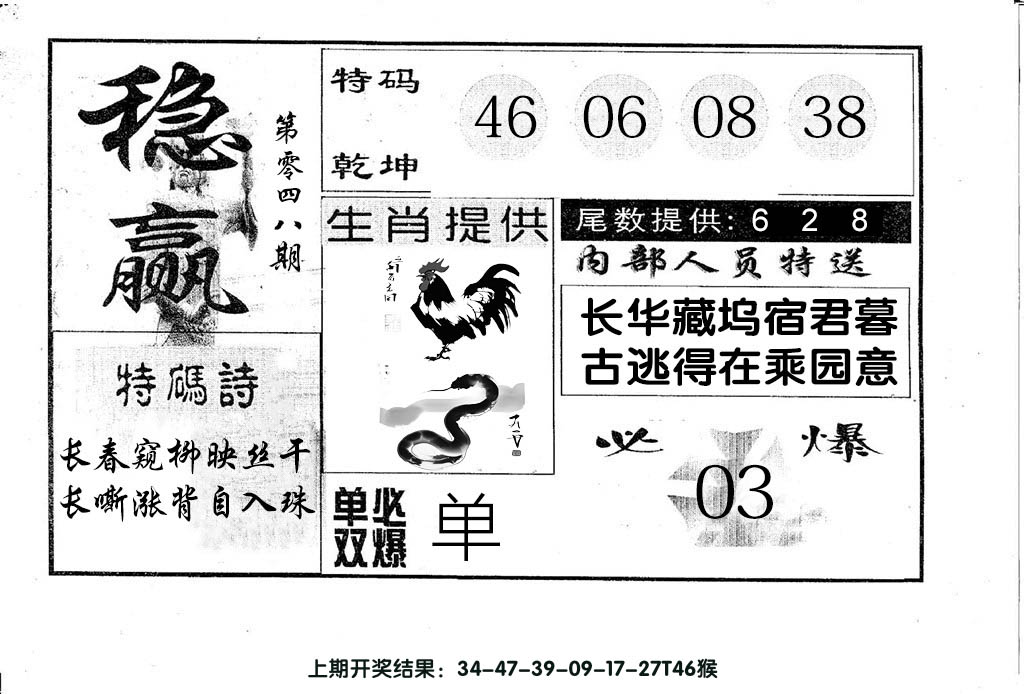 稳赢
第零四八期
特码
乾坤
46 06 08 38
生肖提供
尾数提供: 6 2 8
内部人员特送
长华藏坞宿君暮
古逃得在乘园意
特碼詩
长春窥柳映丝干
长嘶涨背自入珠
必爆
03
单双
必爆
单
上期开奖结果：34-47-39-09-17-27T46猴